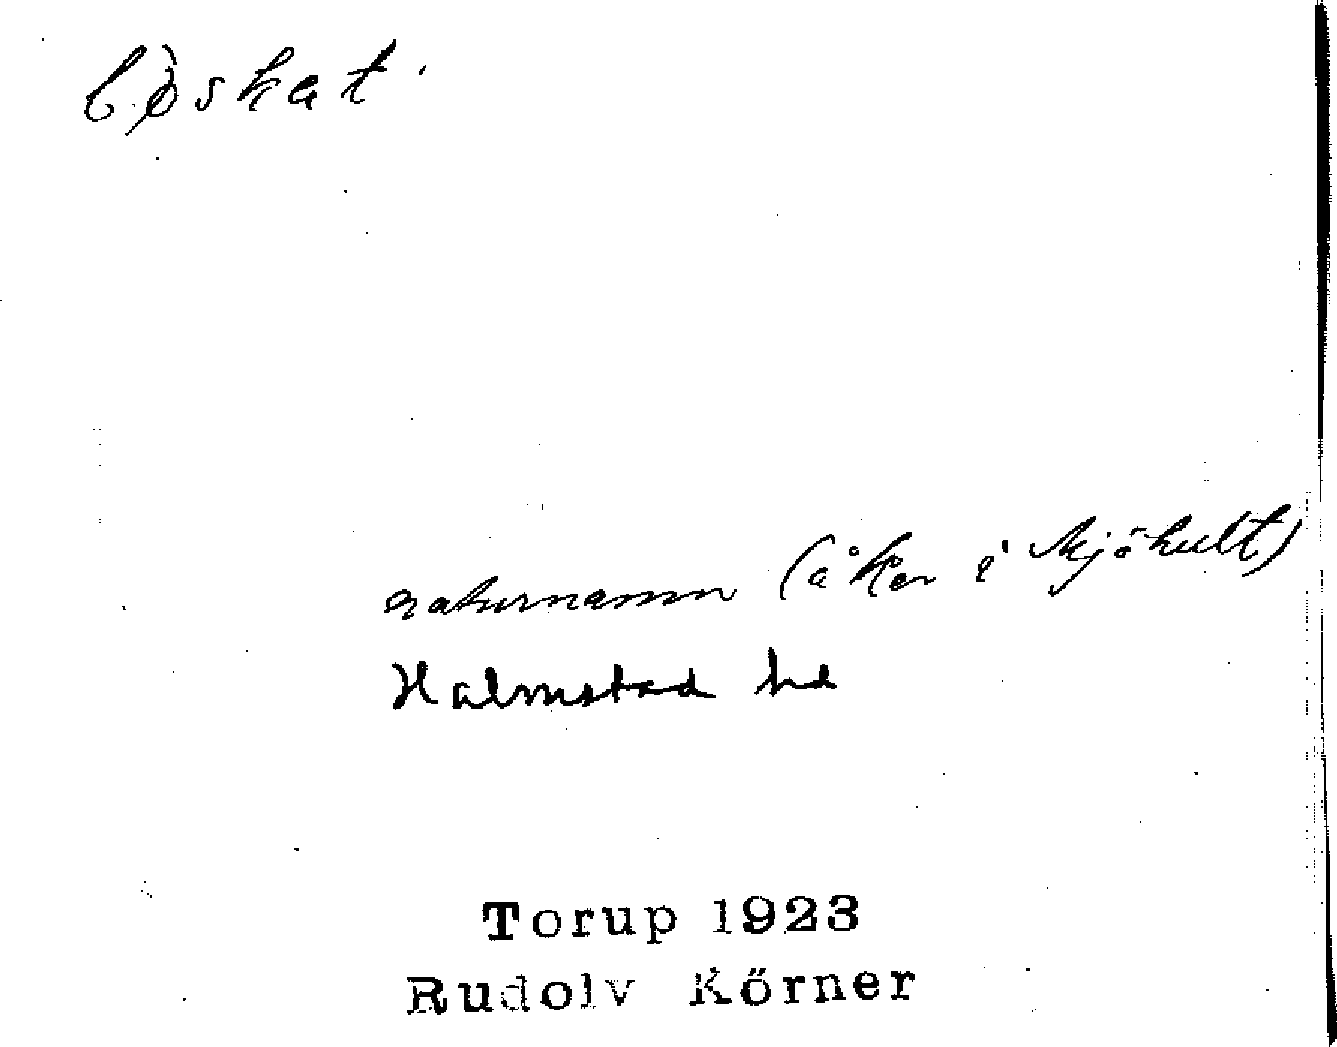 naturnamn (åker i Mjöhult)
Halmstad hd
Torup 1923
Rudolv Körner